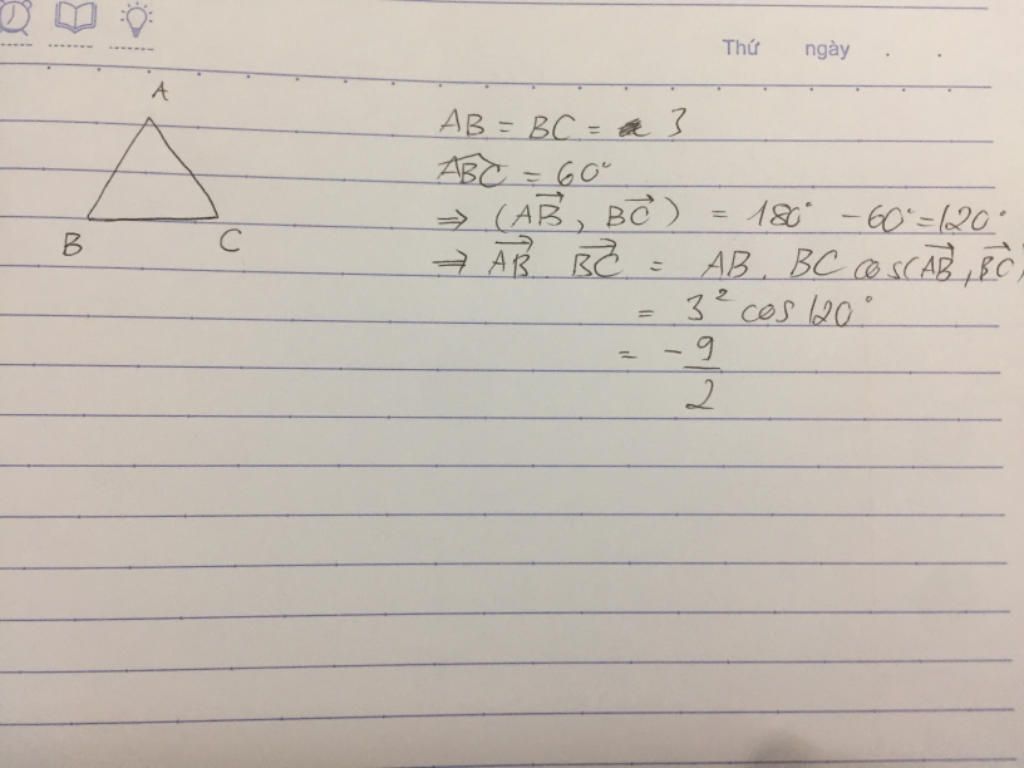 Thứ ngày . .
A
B C
AB = BC = 3
\widehat{ABC} = 60°
⇒ (\overrightarrow{AB}, \overrightarrow{BC}) = 180° - 60° = 120°
⇒ \overrightarrow{AB} \overrightarrow{BC} = AB . BC cos(\overrightarrow{AB}, \overrightarrow{BC})
= 3² cos 120°
= -9/2